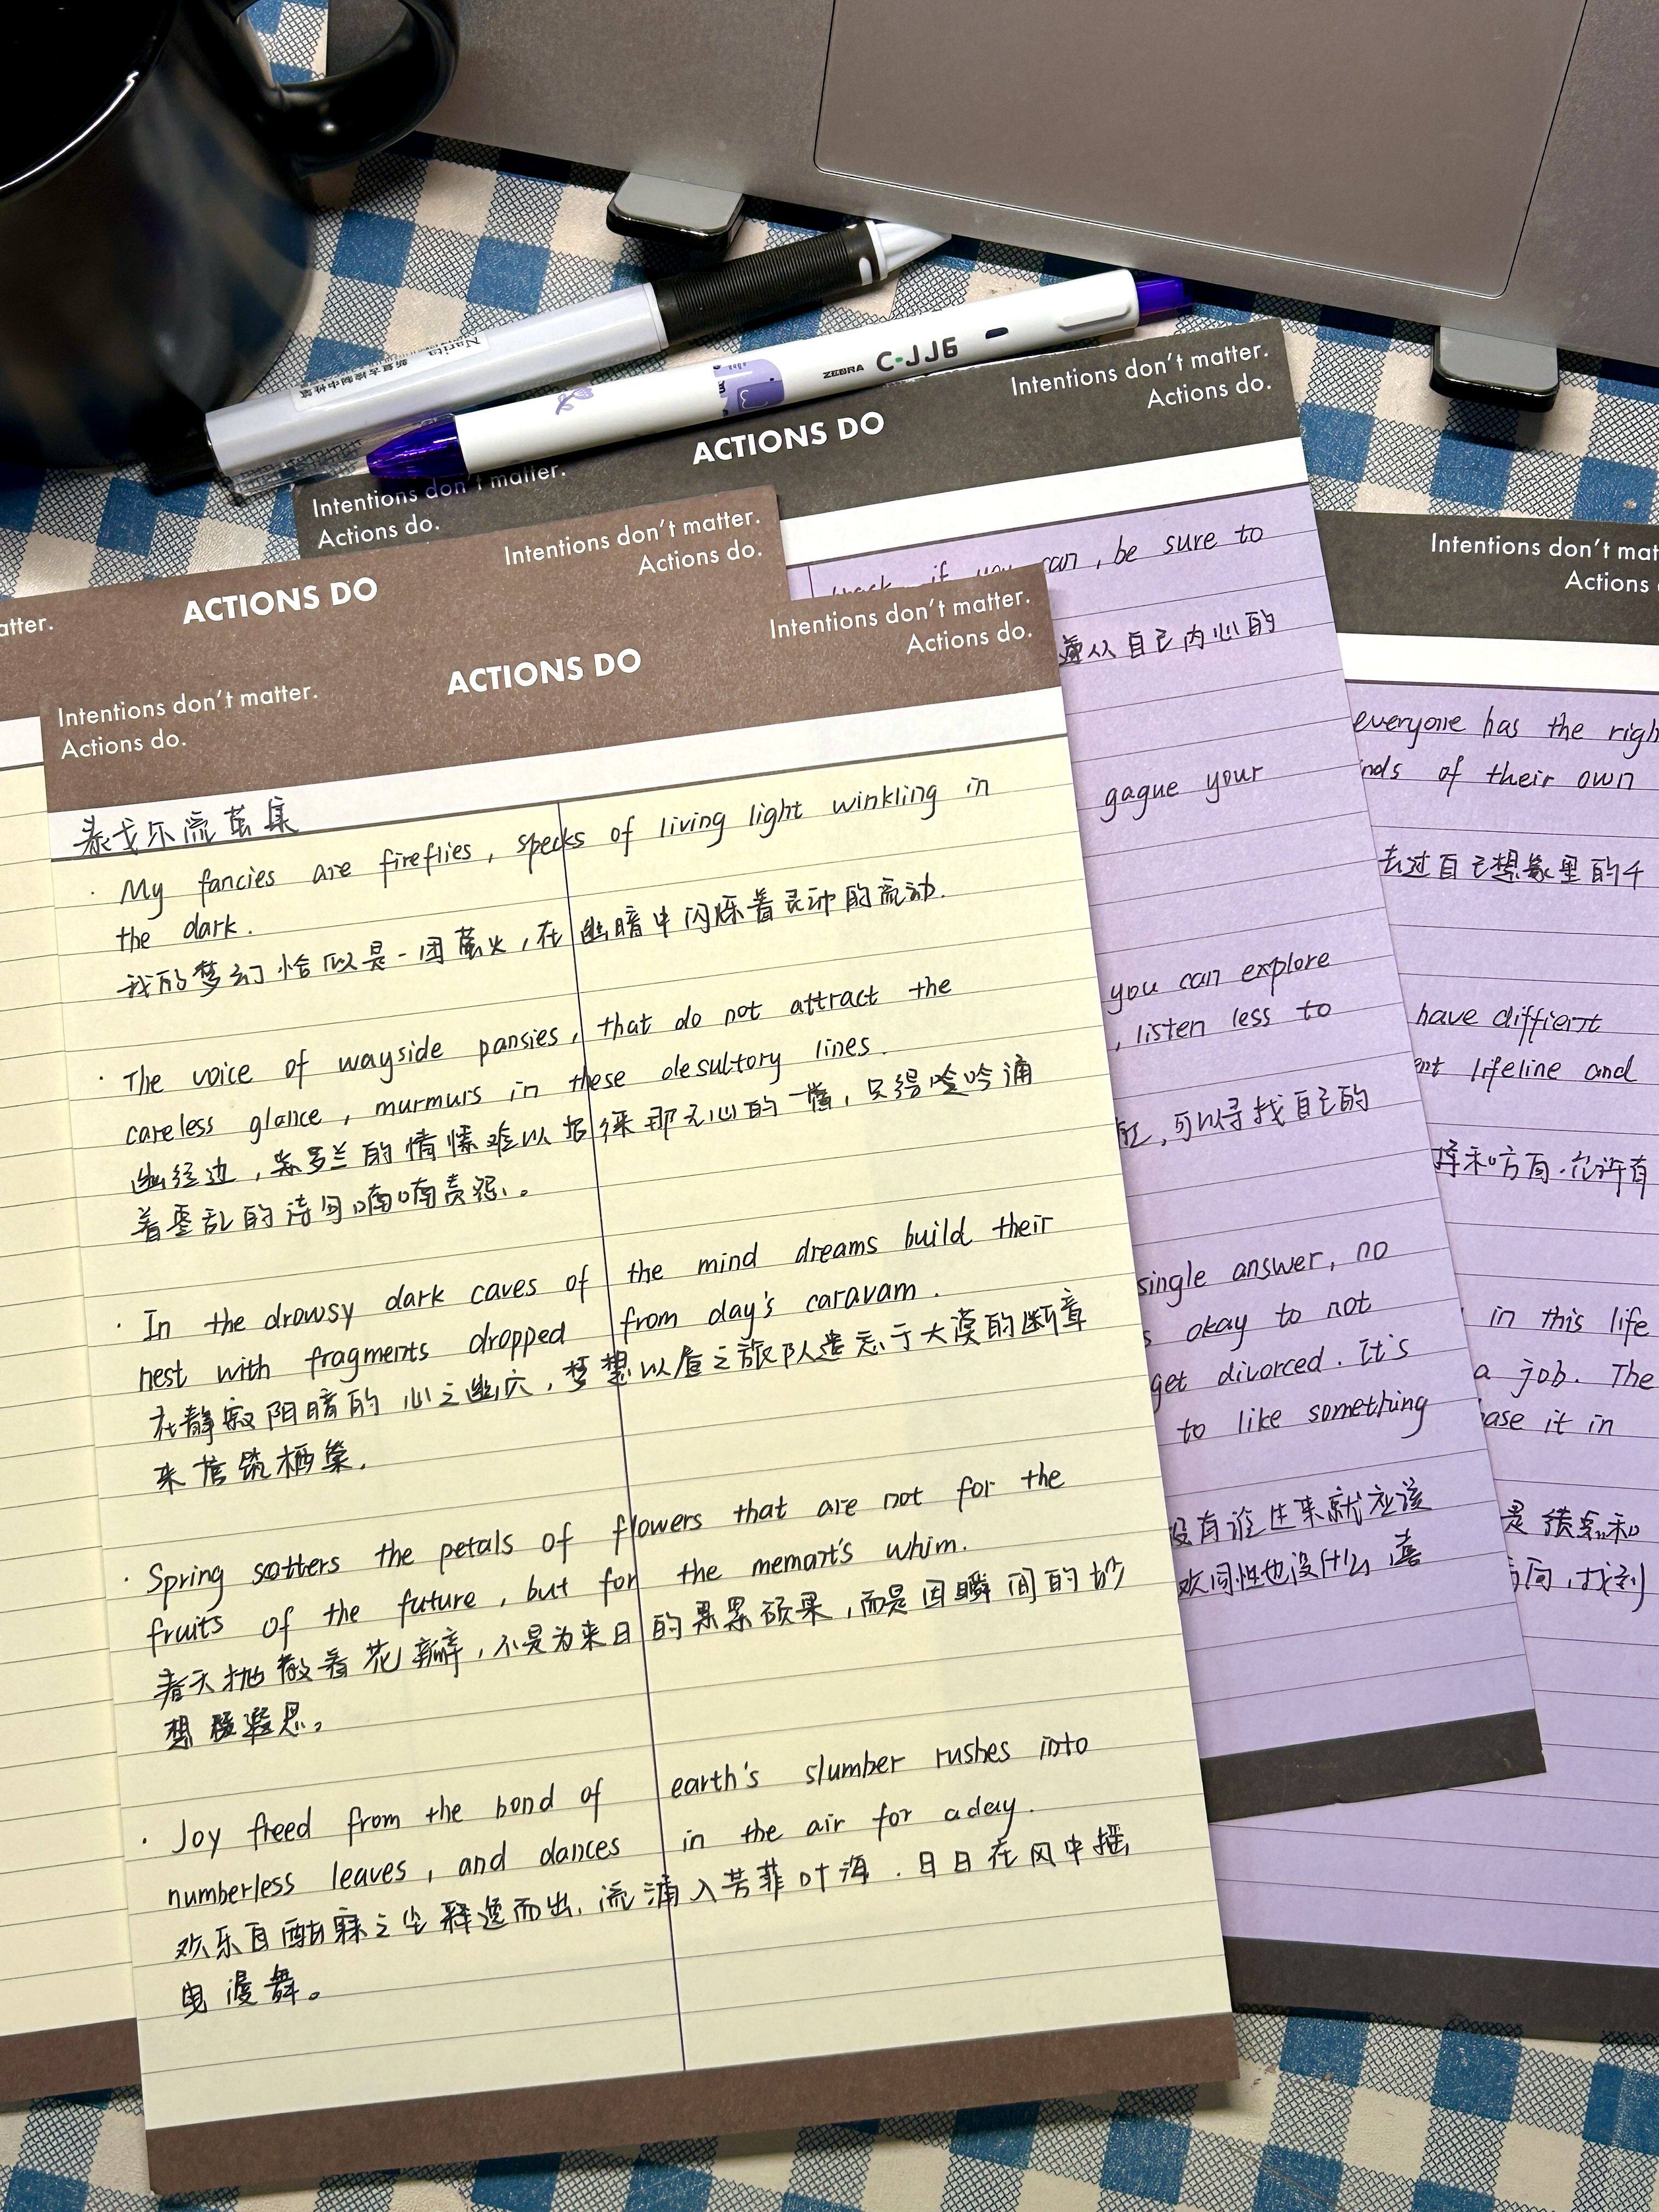 Narita
ZEBRA C-JJ6
Intentions don't matter.
Actions do.
ACTIONS DO
Intentions don't matter.
Actions do.
atter.
ACTIONS DO
Intentions don't matter.
Actions do.
Intentions don't mat
Actions
Intentions don't matter.
Actions do.
ACTIONS DO
Intentions don't matter.
Actions do.
泰戈尔流萤集
· My fancies are fireflies, specks of living light winkling in
the dark.
我的梦幻恰似是一团萤火,在幽暗中闪烁着灵动的流动.
· The voice of wayside pansies, that do not attract the
careless glance, murmurs in these desultory lines.
幽径边,紫罗兰的情愫难以招徕那无心的一瞥,只得吟吟诵
着零乱的诗句喃喃责怨。
· In the drowsy dark caves of the mind dreams build their
nest with fragments dropped from day's caravam.
在静寂阴暗的心之幽穴,梦想以昼之旅队遗忘于大漠的断章
来信筑栖巢.
· Spring scatters the petals of flowers that are not for the
fruits of the future, but for the memart's whim.
春天抛散着花瓣,不是为来日的累累硕果,而是因瞬间的妙
想凝思。
· Joy freed from the bond of earth's slumber rushes into
numberless leaves, and dances in the air for a day.
欢乐自酣寐之尘释逸而出.流涌入芳菲叶海.日日在风中摇
曳漫舞。
if you can, be sure to
遵从自己内心的
gague your
you can explore
, listen less to
可以寻找自己的
single answer, no
okay to not
get divorced. it's
to like something
没有谁生来就应该
欢同性也没什么,喜
everyone has the righ
nds of their own
去过自己想象里的
have diffient
ent lifeline and
择和方向.允许有
in this life
a job. The
ase it in
方向,找到